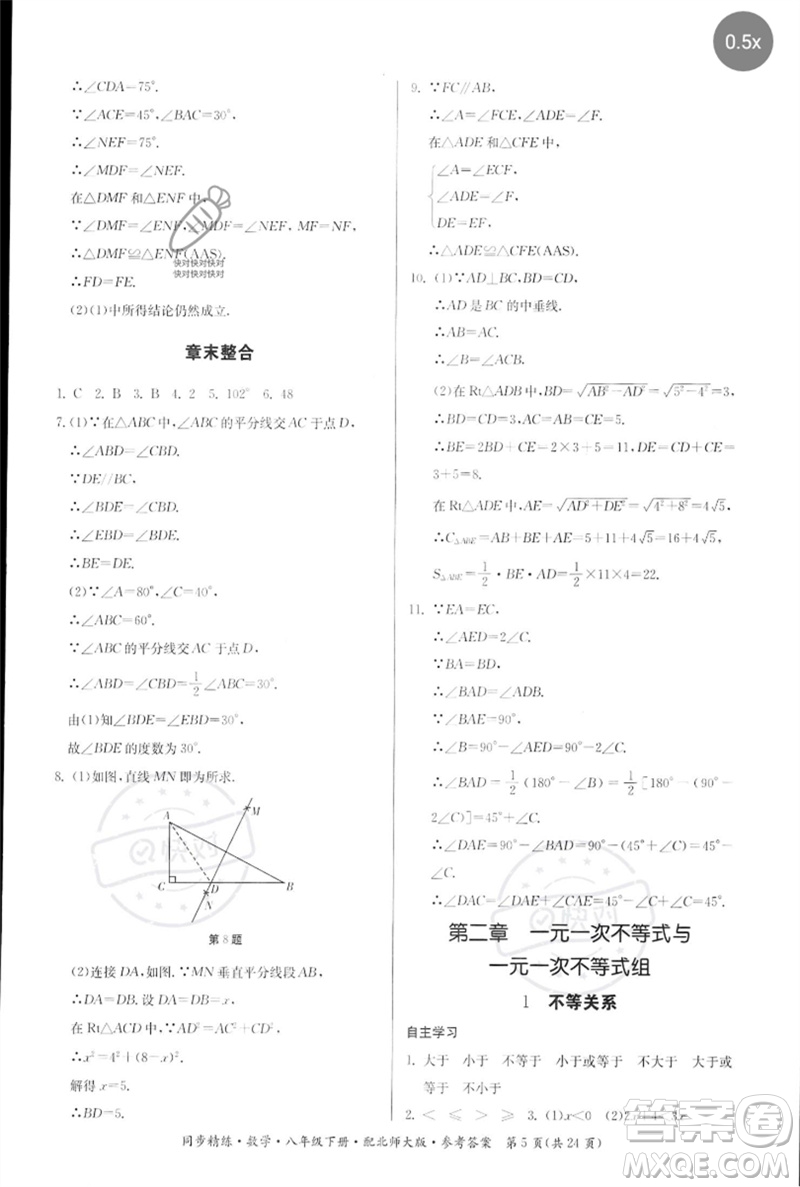 0.5x
∴∠CDA=75°.
∵∠ACE=45°,∠BAC=30°,
∴∠NEF=75°.
∴∠MDF=∠NEF.
在△DMF和△ENF中,
∵∠DMF=∠ENF,∠MDF=∠NEF, MF=NF,
∴△DMF≌△ENF(AAS).
∴FD=FE.
快对快对快对
快对快对快对
(2)(1)中所得结论仍然成立.
章末整合
1. C 2. B 3. B 4. 2 5. 102° 6. 48
7.(1)∵在△ABC中,∠ABC的平分线交AC于点D,
∴∠ABD=∠CBD.
∵DE//BC,
∴∠CBD=∠BDE.
∴∠EBD=∠BDE.
∴BE=DE.
(2)∵∠A=80°,∠C=40°,
∴∠ABC=60°.
∵∠ABC的平分线交AC于点D,
∴∠ABD=∠CBD=1/2∠ABC=30°.
由(1)知∠BDE=∠EBD=30°,
故∠BDE的度数为30°.
8. (1)如图,直线MN即为所求.
M
A
C
D
B
N
第8题
(2)连接DA,如图.∵MN垂直平分线段AB,
∴DA=DB.设DA=DB=x,
在Rt△ACD中,∵AD²=AC²+CD²,
∴x²=4²+(8-x)².
解得x=5.
∴BD=5.
9. ∵FC//AB,
∴∠A=∠FCE,∠ADE=∠F.
在△ADE和△CFE中,
∠A=∠ECF,
∠ADE=∠F,
DE=EF,
∴△ADE≌△CFE(AAS).
10. (1)∵AD⊥BC,BD=CD,
∴AD是BC的中垂线.
∴AB=AC.
∴∠B=∠ACB.
(2)在Rt△ADB中,BD=√(AB²-AD²)=√(5²-4²)=3,
∴BD=CD=3,AB=AC=CE=5.
∴BE=2BD+CE=2×3+5=11,DE=CD+CE=
3+5=8.
在Rt△ADE中,AE=√(AD²+DE²)=√(4²+8²)=4√5,
∴C△ABE=AB+BE+AE=5+11+4√5=16+4√5,
S△ABE=1/2·BE·AD=1/2×11×4=22.
11. ∵EA=EC,
∴∠AED=2∠C.
∵BA=BD,
∴∠BAD=∠ADB.
∵∠BAE=90°,
∴∠B=90°-∠AED=90°-2∠C.
∴∠BAD=1/2(180°-∠B)=1/2[180°-(90°-
2∠C)]=45°+∠C.
∴∠DAE=90°-∠BAD=90°-(45°+∠C)=45°-
∠C.
∴∠DAC=∠DAE+∠CAE=45°-∠C+∠C=45°.
第二章 一元一次不等式与
一元一次不等式组
1 不等关系
自主学习
1. 大于 小于 不等于 小于或等于 不大于 大于或
等于 不小于
2. < ≤ ≥ 3. (1)x<0
同步精练·数学·八年级下册·配北师大版·参考答案 第5页(共24页)